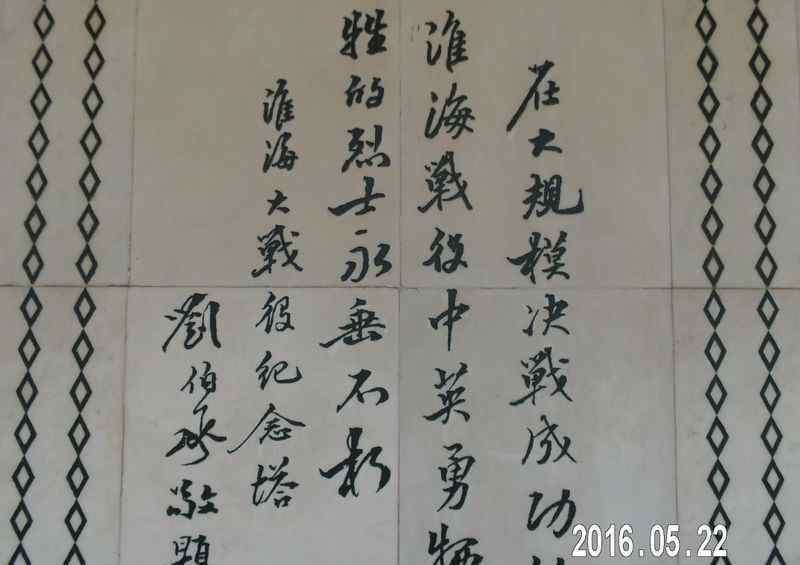 在大規模决戰成功的
淮海戰役中英勇犧
牲的烈士永垂不朽
淮海大戰役纪念塔
劉伯承敬題
2016.05.22